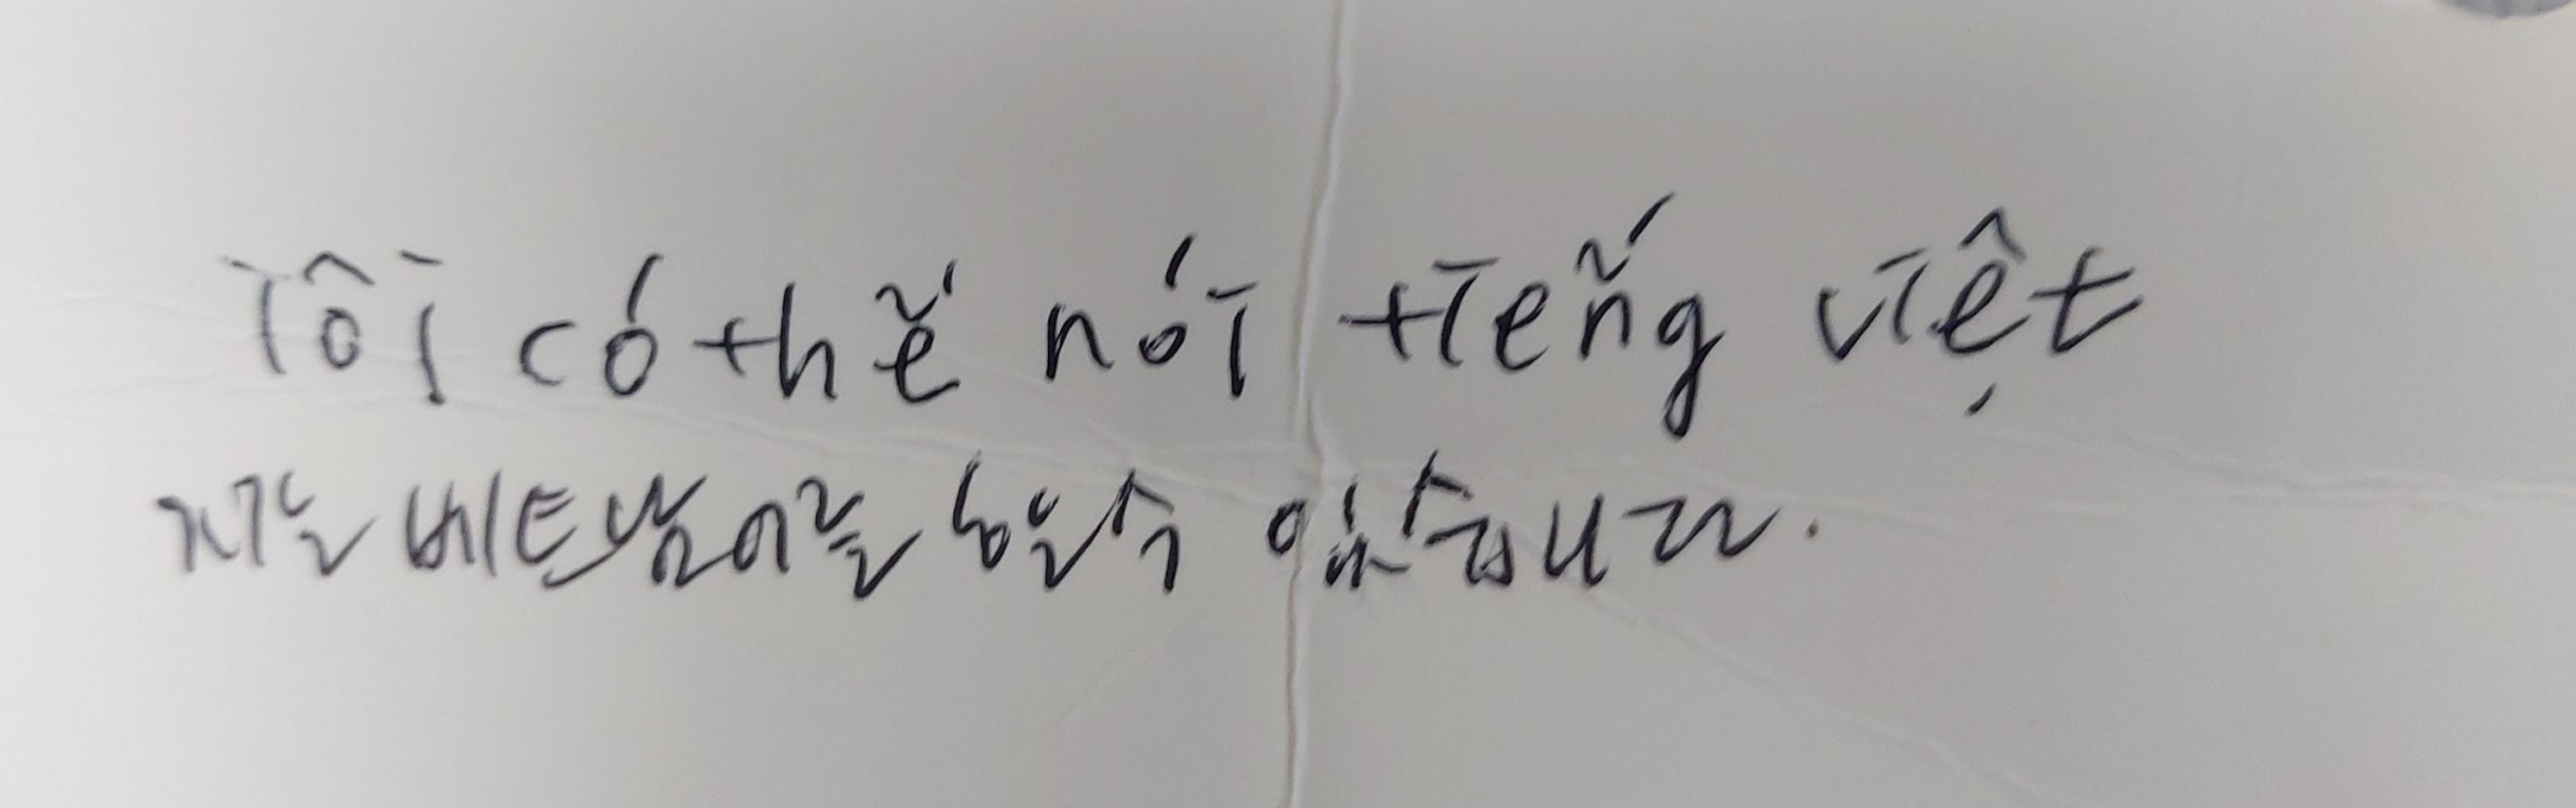 Tôi có thể nói tiếng việt
저는 베트남어를 할 수 있습니다.